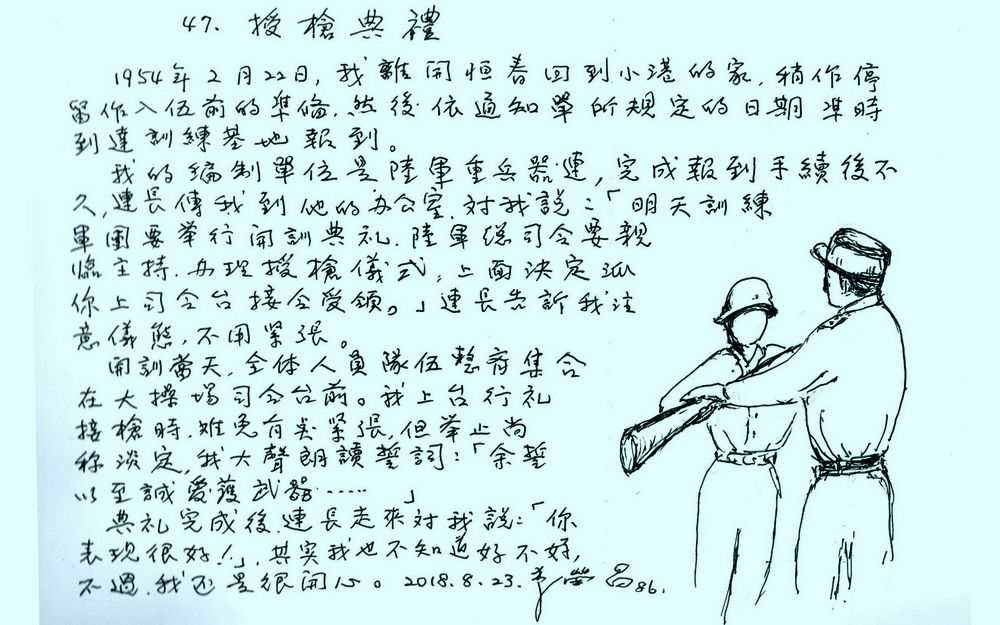 47. 授槍典禮
1954年2月22日,我離開恒春回到小港的家,稍作停
留作入伍前的準備,然後依通知單所規定的日期準時
到達訓練基地報到。
我的編制單位是陸軍重兵器連,完成報到手續後不
久,連長傳我到他的办公室,对我説:「明天訓練
軍團要举行開訓典礼,陸軍総司令要親
臨主持,办理授槍儀式,上面决定派
你上司令台接令受領。」連長告訴我注
意儀態,不用緊張。
開訓當天,全体人員隊伍整齐集合
在大操場司令台前。我上台行礼
接槍時,难免有些緊張,但举止尚
称淡定,我大聲朗讀誓詞:「余誓
以至誠愛護武器……」
典礼完成後,連長走來对我説:「你
表現很好!」,其实我也不知道好不好,
不過,我还是很開心。2018.8.23.李榮昌86.